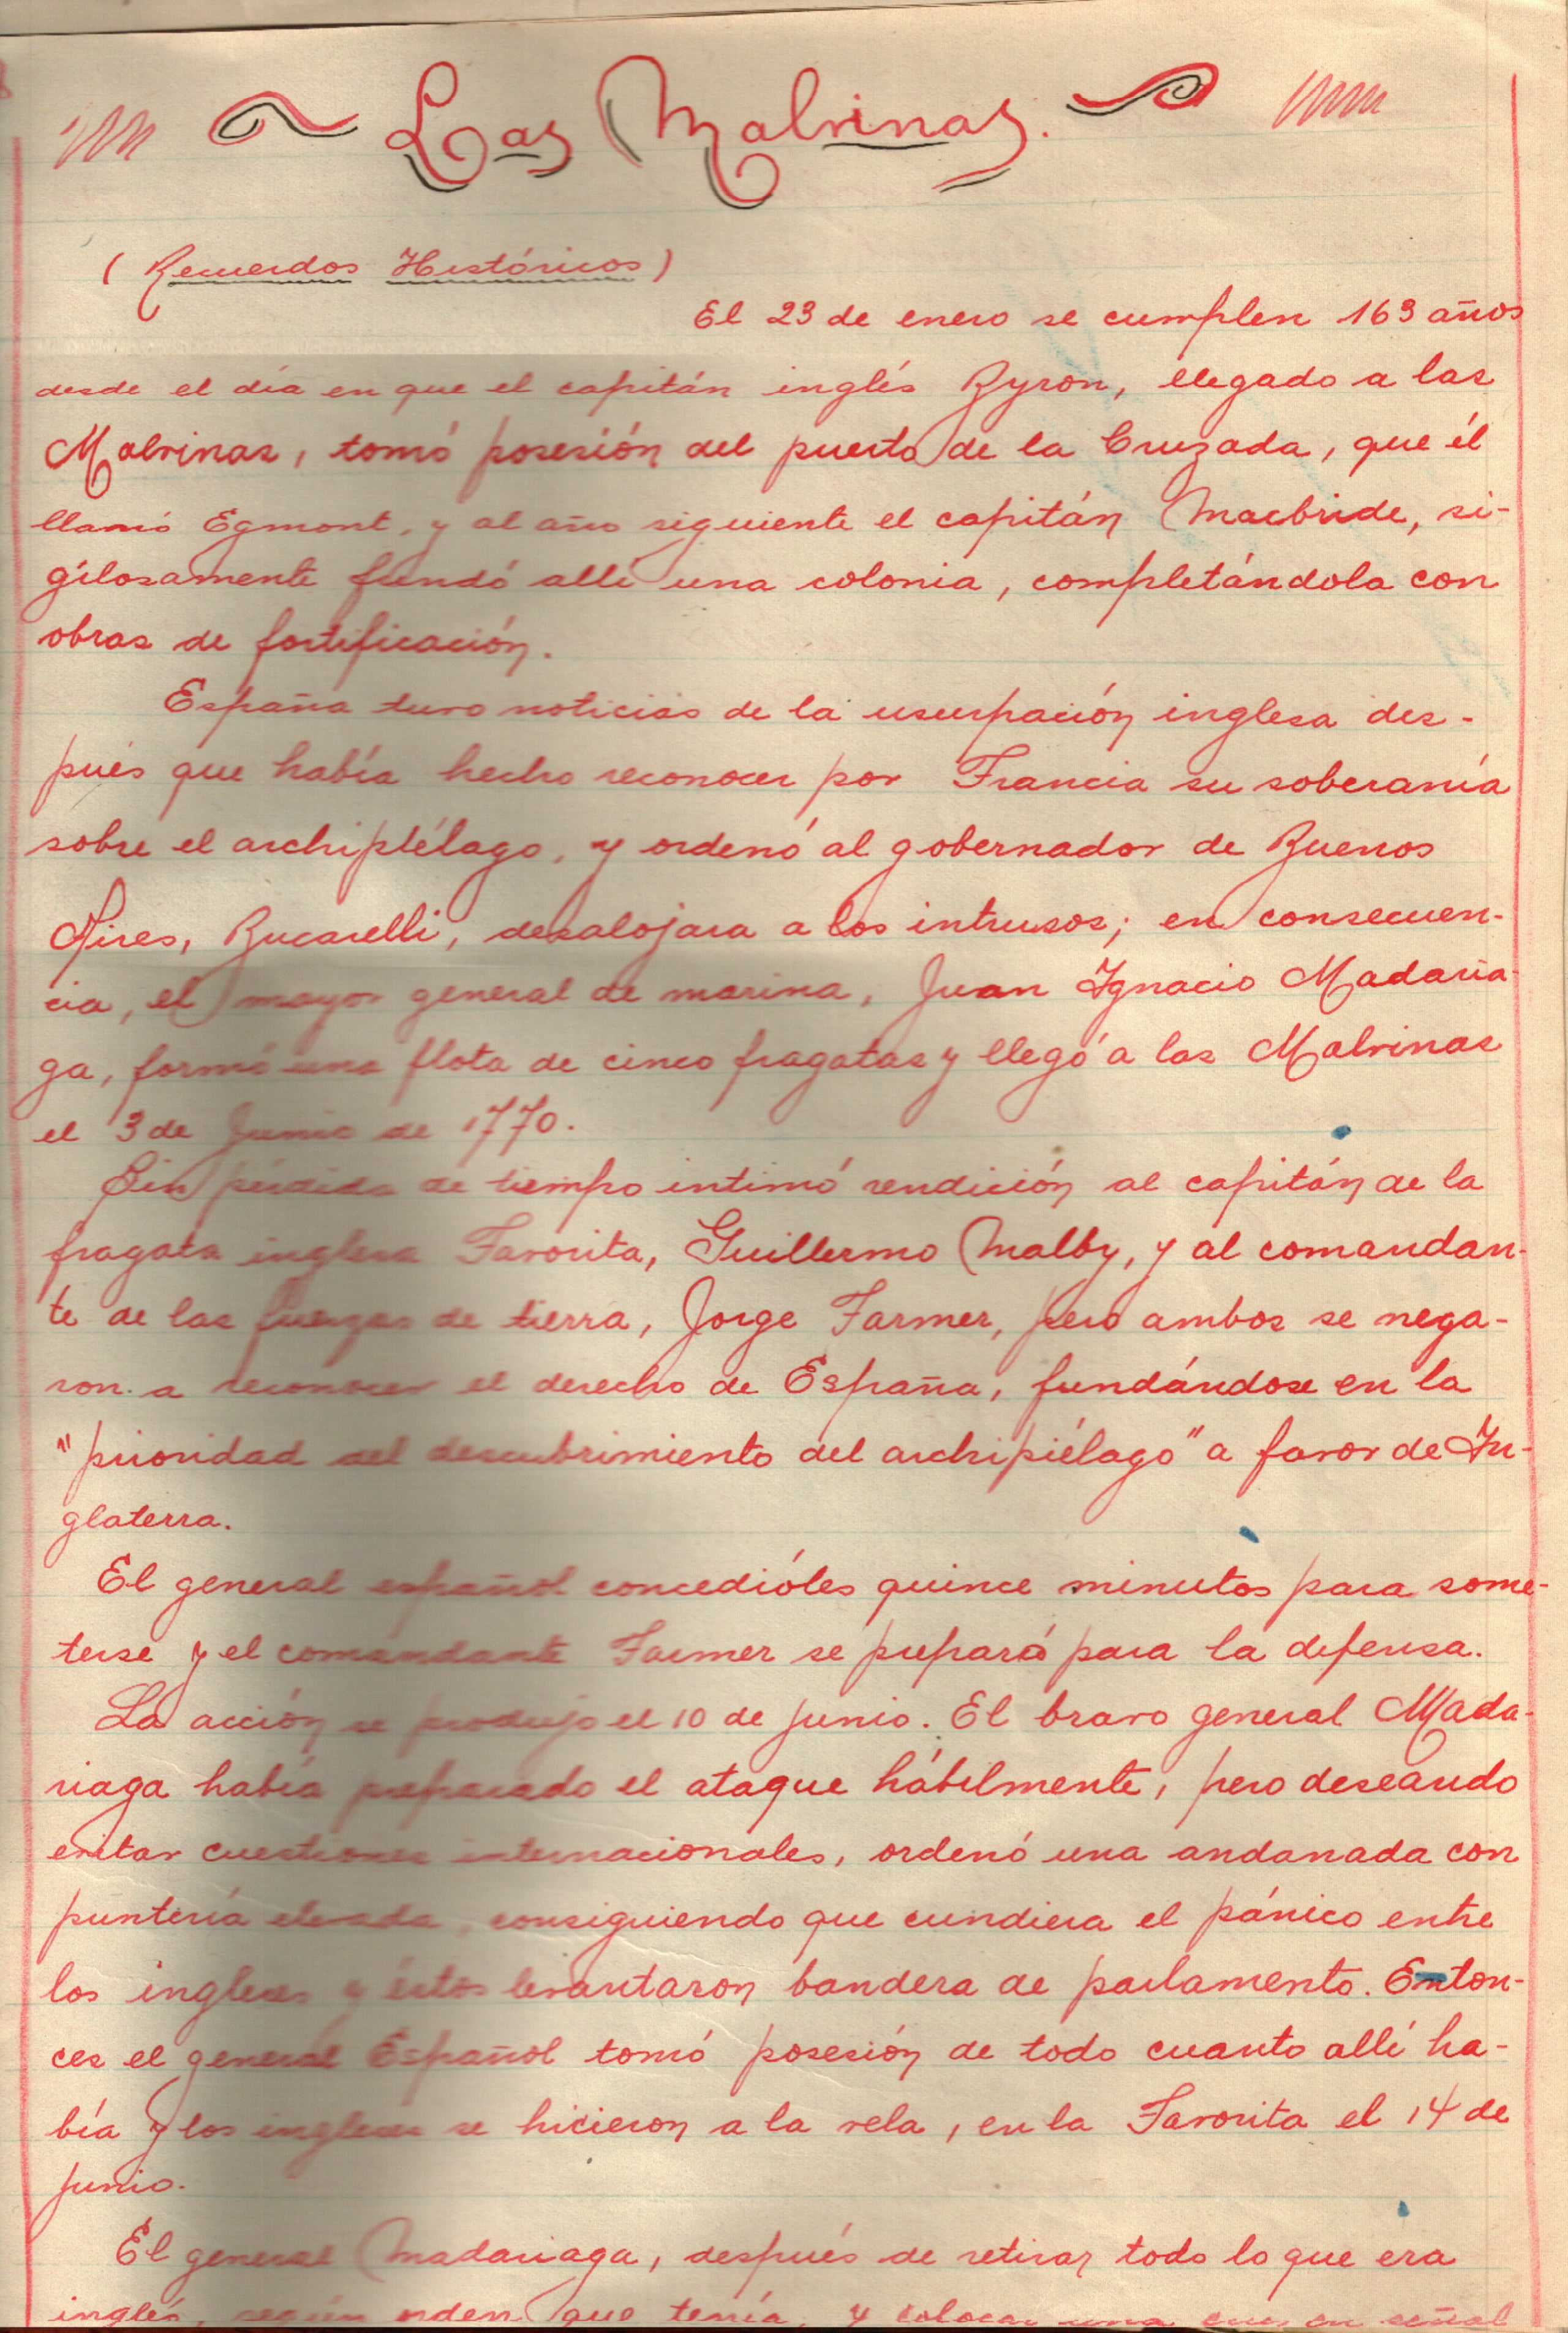 Las Malvinas.
(Recuerdos Históricos)
El 23 de enero se cumplen 163 años
desde el día en que el capitán inglés Byron, llegado a las
Malvinas, tomó posesión del puerto de la Cruzada, que él
llamó Egmont, y al año siguiente el capitán Macbride, si-
gilosamente fundó allí una colonia, completándola con
obras de fortificación.
España tuvo noticias de la usurpación inglesa des-
pués que había hecho reconocer por Francia su soberanía
sobre el archipiélago, y ordenó al gobernador de Buenos
Aires, Bucarelli, desalojara a los intrusos; en consecuen-
cia, el mayor general de marina, Juan Ignacio Madaria-
ga, formó una flota de cinco fragatas y llegó a las Malvinas
el 3 de Junio de 1770.
Sin pérdida de tiempo intimó rendición al capitán de la
fragata inglesa Favorita, Guillermo Malby, y al comandan-
te de las fuerzas de tierra, Jorge Farmer, pero ambos se nega-
ron a reconocer el derecho de España, fundándose en la
"prioridad del descubrimiento del archipiélago" a favor de In-
glaterra.
El general español concedióles quince minutos para some-
terse y el comandante Farmer se preparó para la defensa.
La acción se produjo el 10 de junio. El bravo general Mada-
riaga había preparado el ataque hábilmente, pero deseando
evitar cuestiones internacionales, ordenó una andanada con
puntería elevada, consiguiendo que cundiera el pánico entre
los ingleses y éstos levantaron bandera de parlamento. Enton-
ces el general Español tomó posesión de todo cuanto allí ha-
bía y los ingleses se hicieron a la vela, en la Favorita el 14 de
junio.
El general Madariaga, después de retirar todo lo que era
inglés, según orden que tenía, y colocar una cruz en señal